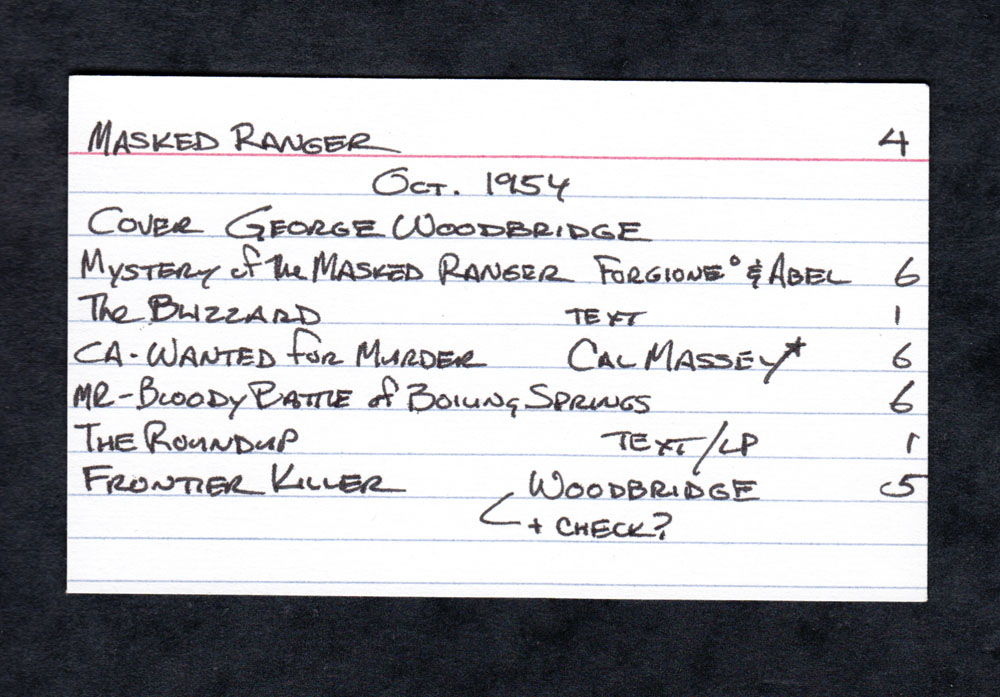 MASKED RANGER 4
OCT. 1954
COVER GEORGE WOODBRIDGE
MYSTERY of the MASKED RANGER FORGIONE° & ABEL 6
The BLIZZARD TEXT 1
CA-WANTED for MURDER CAL MASSEY* 6
MR-BLOODY BATTLE of BOILING SPRINGS 6
THE ROUNDUP TEXT/LP 1
FRONTIER KILLER WOODBRIDGE 5
+ CHECK?